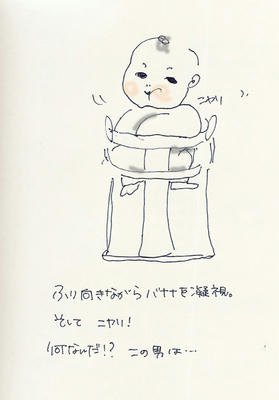 ニヤリ
ふり向きながらバナナを凝視。
そして ニヤリ!
何なんだ!? この男は…